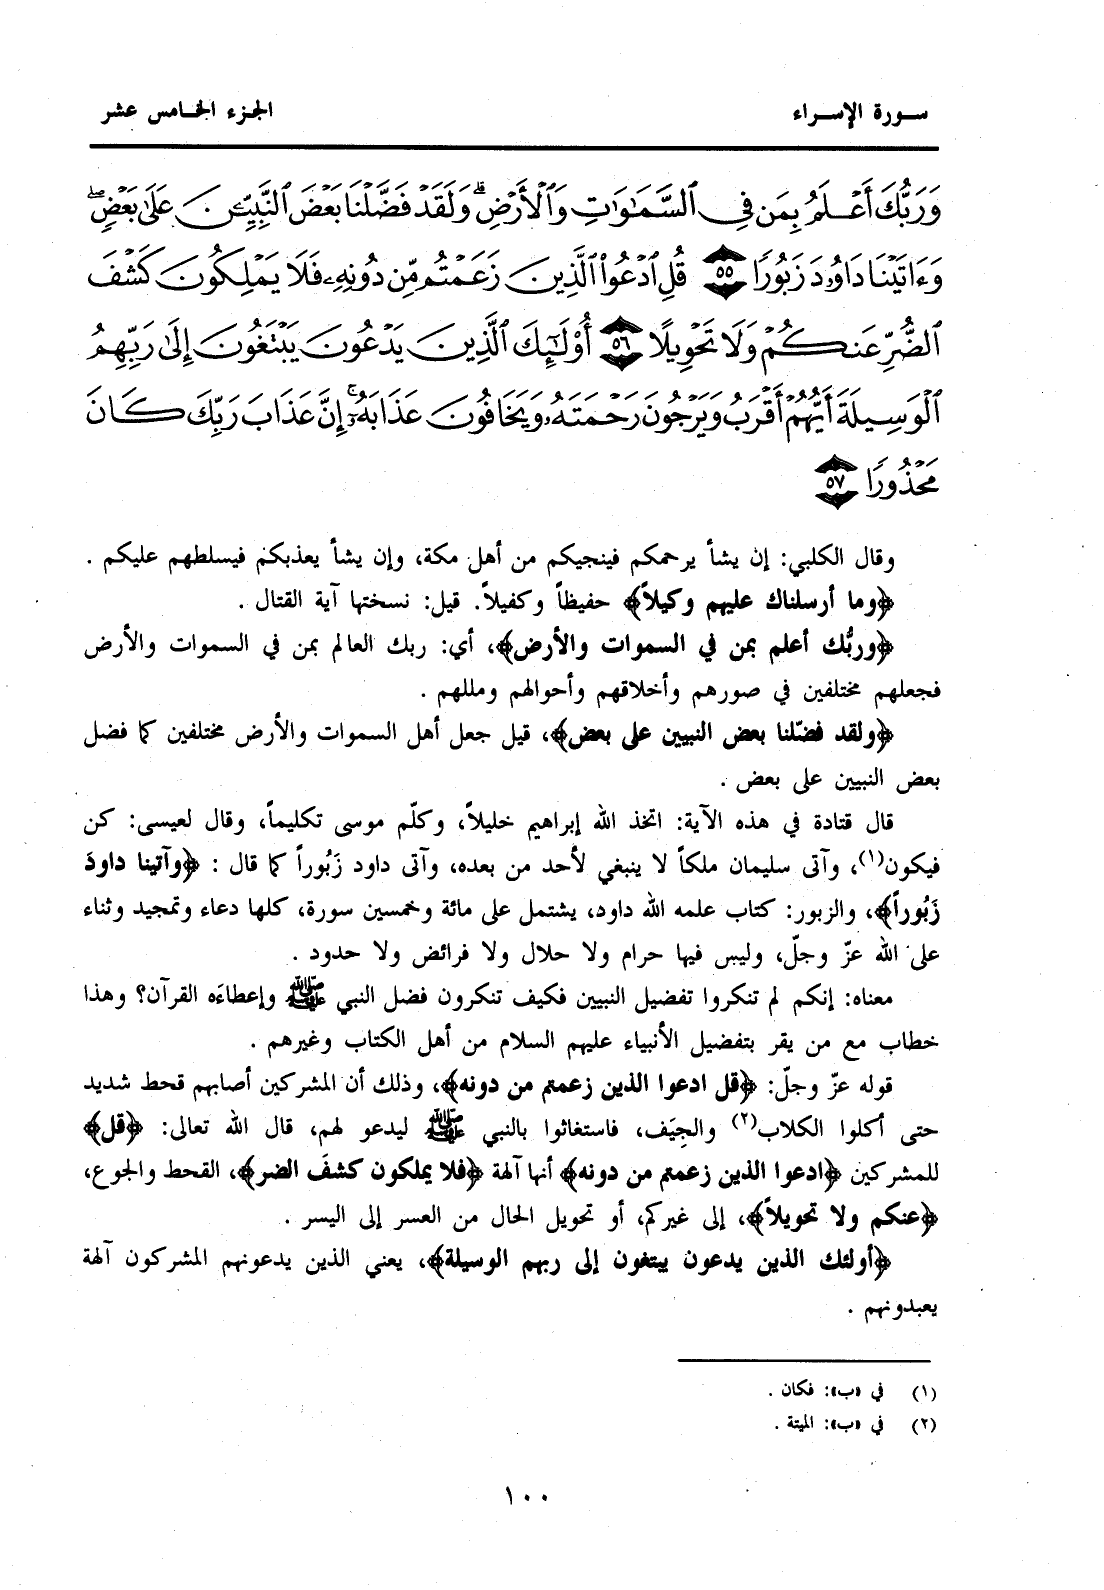 سورة الإسراء
الجزء الخامس عشر
وَرَبُّكَ أَعۡلَمُ بِمَن فِي ٱلسَّمَٰوَٰتِ وَٱلۡأَرۡضِۗ وَلَقَدۡ فَضَّلۡنَا بَعۡضَ ٱلنَّبِيِّـۧنَ عَلَىٰ بَعۡضٖۖ
وَءَاتَيۡنَا دَاوُۥدَ زَبُورٗا ٥٥ قُلِ ٱدۡعُواْ ٱلَّذِينَ زَعَمۡتُم مِّن دُونِهِۦ فَلَا يَمۡلِكُونَ كَشۡفَ
ٱلضُّرِّ عَنكُمۡ وَلَا تَحۡوِيلًا ٥٦ أُوْلَٰٓئِكَ ٱلَّذِينَ يَدۡعُونَ يَبۡتَغُونَ إِلَىٰ رَبِّهِمُ
ٱلۡوَسِيلَةَ أَيُّهُمۡ أَقۡرَبُ وَيَرۡجُونَ رَحۡمَتَهُۥ وَيَخَافُونَ عَذَابَهُۥٓۚ إِنَّ عَذَابَ رَبِّكَ كَانَ
مَحۡذُورٗا ٥٧
وقال الكلبي: إن يشأ يرحمكم فينجيكم من أهل مكة، وإن يشأ يعذبكم فيسلطهم عليكم .
﴿وما أرسلناك عليهم وكيلاً﴾ حفيظاً وكفيلاً. قيل: نسختها آية القتال .
﴿وربُّك أعلم بمن في السموات والأرض﴾، أي: ربك العالم بمن في السموات والأرض
فجعلهم مختلفين في صورهم وأخلاقهم وأحوالهم ومللهم .
﴿ولقد فضّلنا بعض النبيين على بعض﴾، قيل جعل أهل السموات والأرض مختلفين كما فضل
بعض النبيين على بعض .
قال قتادة في هذه الآية: اتخذ الله إبراهيم خليلاً، وكلّم موسى تكليماً، وقال لعيسى: كن
فيكون(١)، وآتى سليمان ملكاً لا ينبغي لأحد من بعده، وآتى داود زَبُوراً كما قال : ﴿وآتينا داودَ
زَبُوراً﴾، والزبور: كتاب علمه الله داود، يشتمل على مائة وخمسين سورة، كلها دعاء وتمجيد وثناء
على الله عزّ وجلّ، وليس فيها حرام ولا حلال ولا فرائض ولا حدود .
معناه: إنكم لم تنكروا تفضيل النبيين فكيف تنكرون فضل النبي ﷺ وإعطاءَه القرآن؟ وهذا
خطاب مع من يقر بتفضيل الأنبياء عليهم السلام من أهل الكتاب وغيرهم .
قوله عزّ وجلّ: ﴿قل ادعوا الذين زعمتم من دونه﴾، وذلك أن المشركين أصابهم قحط شديد
حتى أكلوا الكلاب(٢) والجِيَف، فاستغاثوا بالنبي ﷺ ليدعو لهم، قال الله تعالى: ﴿قل﴾
للمشركين ﴿ادعوا الذين زعمتم من دونه﴾ أنها آلهة ﴿فلا يملكون كشفَ الضر﴾، القحط والجوع،
﴿عنكم ولا تحويلاً﴾، إلى غيركم، أو تحويل الحال من العسر إلى اليسر .
﴿أولئك الذين يدعون يبتغون إلى ربهم الوسيلة﴾، يعني الذين يدعونهم المشركون آلهة
يعبدونهم .
(١) في «ب»: فكان .
(٢) في «ب»: الميتة .
١٠٠